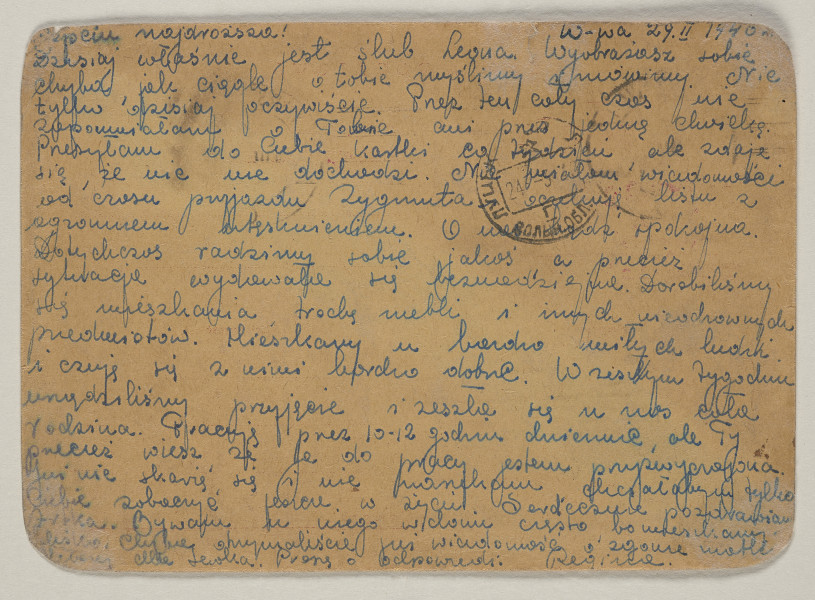 najdroższa! W-wa 29.II 1940
Dzisiaj właśnie jest ślub Legna. Wyobrażasz sobie
chyba, jak ciągle o tobie myślimy i mówimy. Nie
tylko dzisiaj oczywiście. Przez ten cały czas nie
zapomniałam o Tobie ani przez jedną chwilkę.
Przesyłam do Ciebie kartki co tydzień ale zdaje
się, że nic nie dochodzi. Nie miałam wiadomości
od czasu przyjazdu Zygmunta. oczekuję listu z
ogromnem utęsknieniem. O nas bądź spokojna.
Dotychczas radzimy sobie jakoś a przecież
sytuacja wydawała się beznadziejna. Dorobiliśmy
się mieszkania trochę mebli i innych niezbędnych
przedmiotów. Mieszkamy u bardzo miłych ludzi
i czuję się z nimi bardzo dobrze. W zeszłym tygodniu
urządziliśmy przyjęcie i zeszła się u nas cała
rodzina. Pracuję przez 10-12 godzin dziennie, ale Ty
przecież wiesz że ja do pracy jestem przyzwyczajona.
Już nie skarżę się i nie narzekam chciałabym tylko
Ciebie zobaczyć jeszcze w życiu. Serdecznie pozdrawiam
Bywam u niego w domu często bo mieszkamy
blisko. Chyba otrzymaliście już wiadomość o zgonie matki
dla Proszę o odpowiedź. Regina.